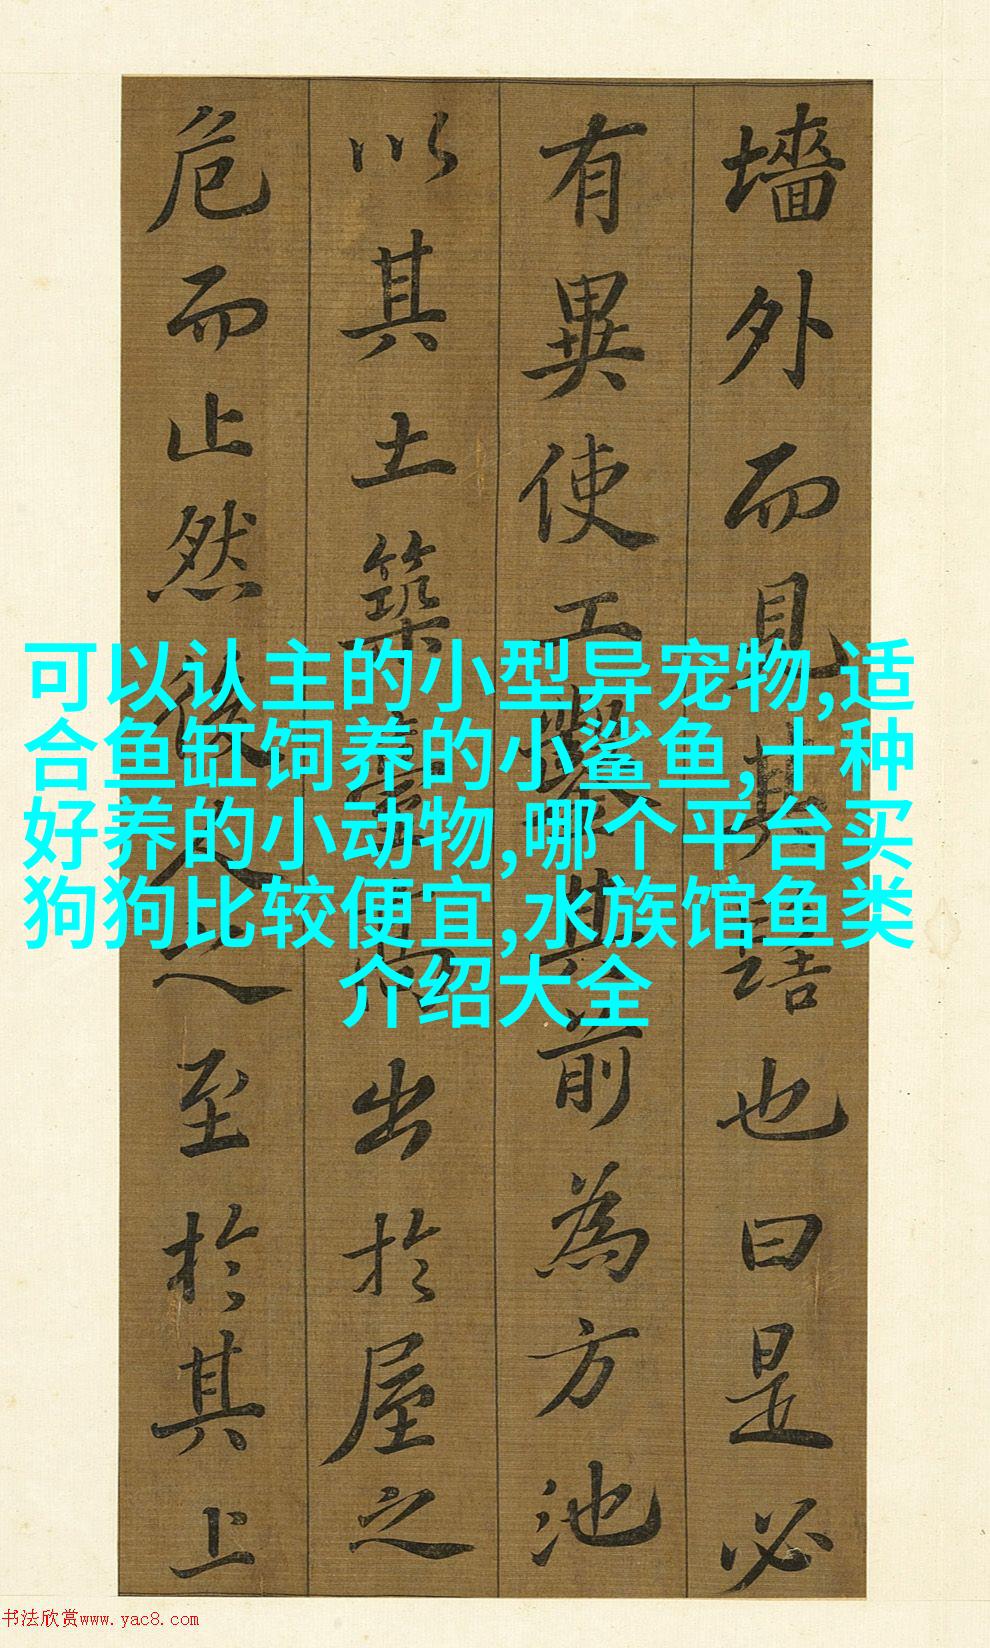 墻外而見其髻也曰是必
有異使工鑿其前為方池
以其土築臺高出於屋之
危而止然後人之至於其上
可以认主的小型异宠物,适
合鱼缸饲养的小鲨鱼,十种
好养的小动物,哪个平台买
狗狗比较便宜,水族馆鱼类
介绍大全
书法欣赏www.yac8.com